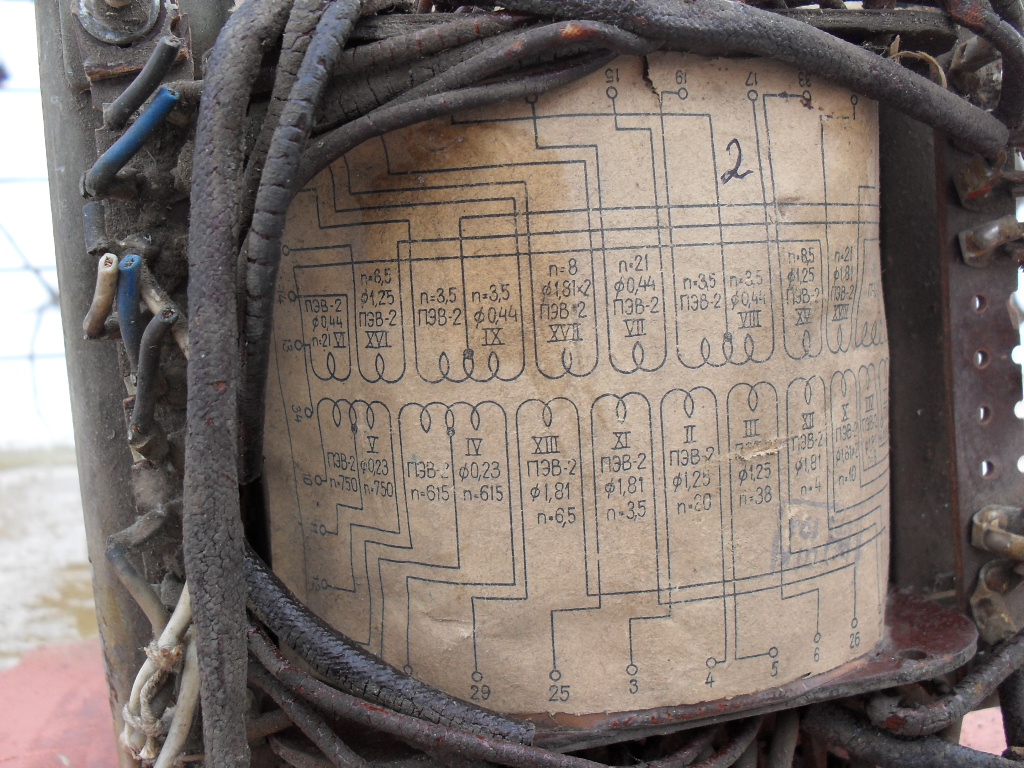 15 19 17
2
n=6,5 n=8 n=21 n=8,5 n=21
ПЭВ-2 ф1,25 n=3,5 n=3,5 ф1,81×2 ф0,44 n=3,5 n=3,5 ф1,25 ф1,81
ф0,44 ПЭВ-2 ПЭВ-2 ф0,44 ПЭВ-2 ПЭВ-2 ПЭВ-2 ф0,44 ПЭВ-2 ПЭВ-2
n=21 VI XVI IX XVII VII VIII XV
V IV XIII XI II III XI X
ПЭВ-2 ф0,23 ПЭВ-2 ф0,23 ПЭВ-2 ПЭВ-2 ПЭВ-2 ПЭВ-2
n=750 n=750 n=615 n=615 ф1,81 ф1,81 ф1,25 ф1,25 ф1,81
n=6,5 n=3,5 n=38 n=4 n=10
29 25 3 4 5 6 26